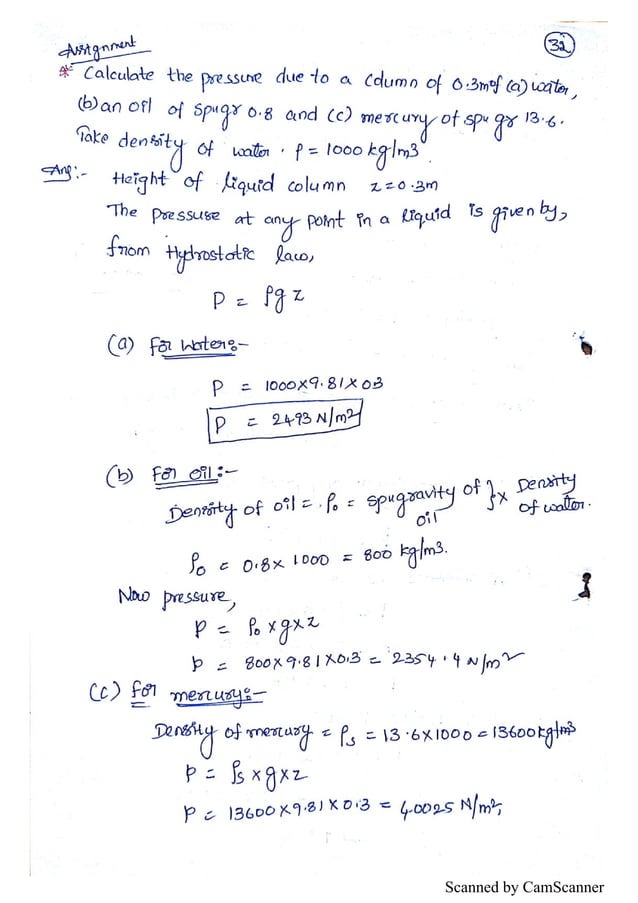 Assignment
32
* Calculate the pressure due to a column of 0.3m of (a) water,
(b) an oil of sp.gr 0.8 and (c) mercury of sp. gr 13.6.
Take density of water. ρ = 1000 kg/m3.
Ans:- Height of liquid column z = 0.3m
The pressure at any point in a liquid is given by,
from Hydrostatic law,
P = ρg z
(a) For Water:-
P = 1000×9.81×03
P = 2493 N/m2
(b) For oil:-
Density of oil = ρo = spugravity of } × Density
oil of water.
ρo = 0.8 × 1000 = 800 kg/m3.
Now pressure,
P = ρo × g × z
P = 800×9.81×0.3 = 2354.4 N/m2
(c) For mercury:-
Density of mercury = ρs = 13.6×1000 = 13600kg/m3
P = ρs × g × z
P = 13600×9.81×0.3 = 40025 N/m2,
Scanned by CamScanner